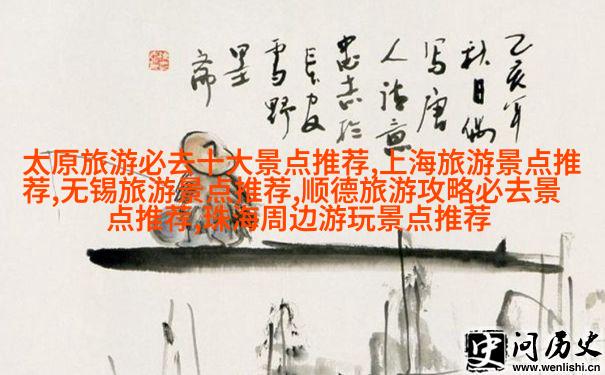 乙亥年
秋日偶
写唐
人诗意
忠志於
长安
雪野
墨
斋
太原旅游必去十大景点推荐,上海旅游景点推
荐,无锡旅游景点推荐,顺德旅游攻略必去景
点推荐,珠海周边游玩景点推荐
史问历史
www.wenlishi.cn